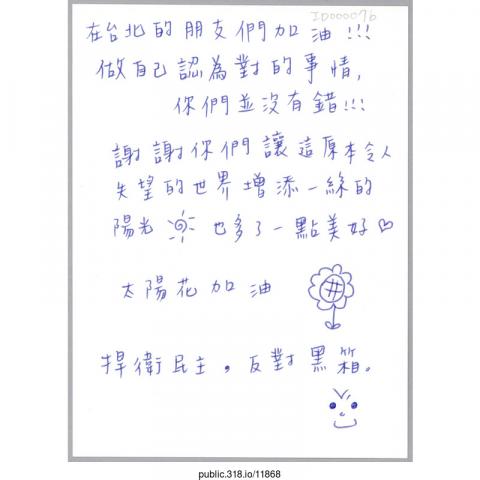 ID000076
在台北的朋友們加油!!!
做自己認為對的事情,
你們並沒有錯!!!
謝謝你們讓這原本令人
失望的世界增添一絲的
陽光 也多了一點美好♡
太陽花加油
捍衛民主,反對黑箱。
public.318.io/11868